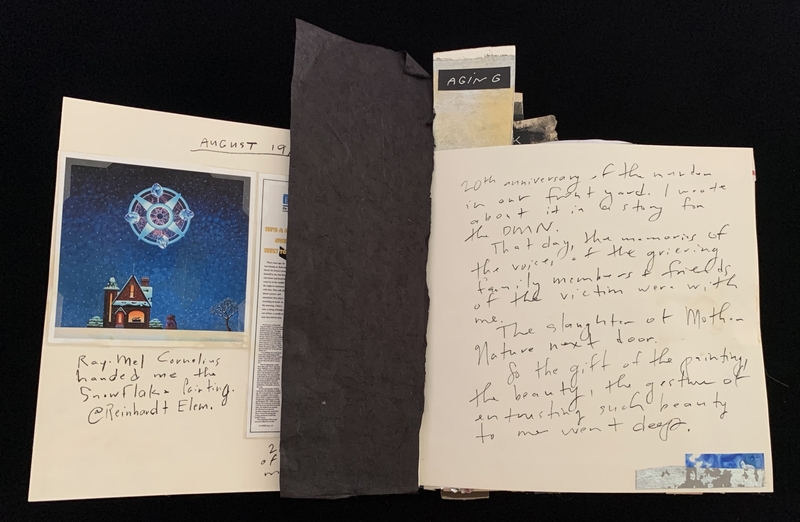 AUGUST 19,
Ray-Mel Cornelius
handed me the
Snowflake Painting.
@Reinhardt Elem.
2
of
m
AGING
20th anniversary of the murder
in our front yard. I wrote
about it in a story for
the DMN.
That day, the memories of
the voices of the grieving
family members & friends
of the victim were with
me.
The slaughter of Mother
Nature next door.
So the gift of the painting,
the beauty, the gesture of
entrusting such beauty
to me went deep.